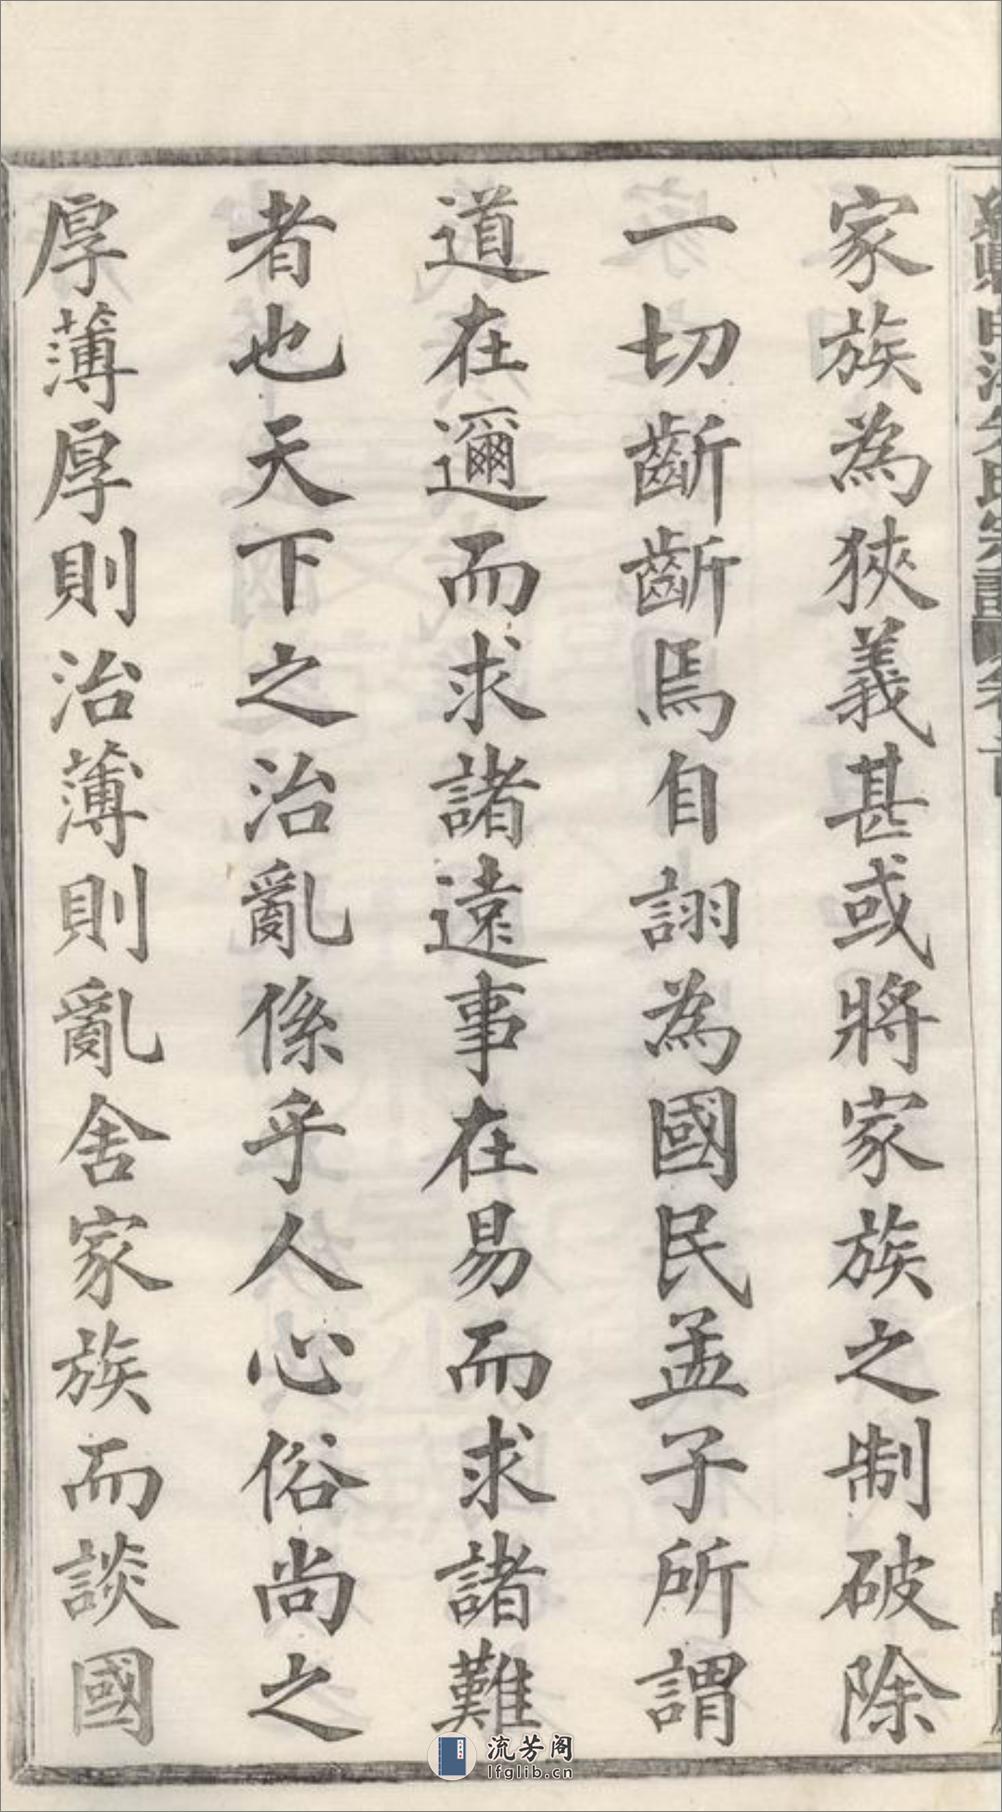 家族為狹義甚或將家族之制破除
一切齗齗焉自詡為國民孟子所謂
道在邇而求諸遠事在易而求諸難
者也天下之治亂係乎人心俗尚之
厚薄厚則治薄則亂舍家族而談國
流芳阁
lfglib.cn